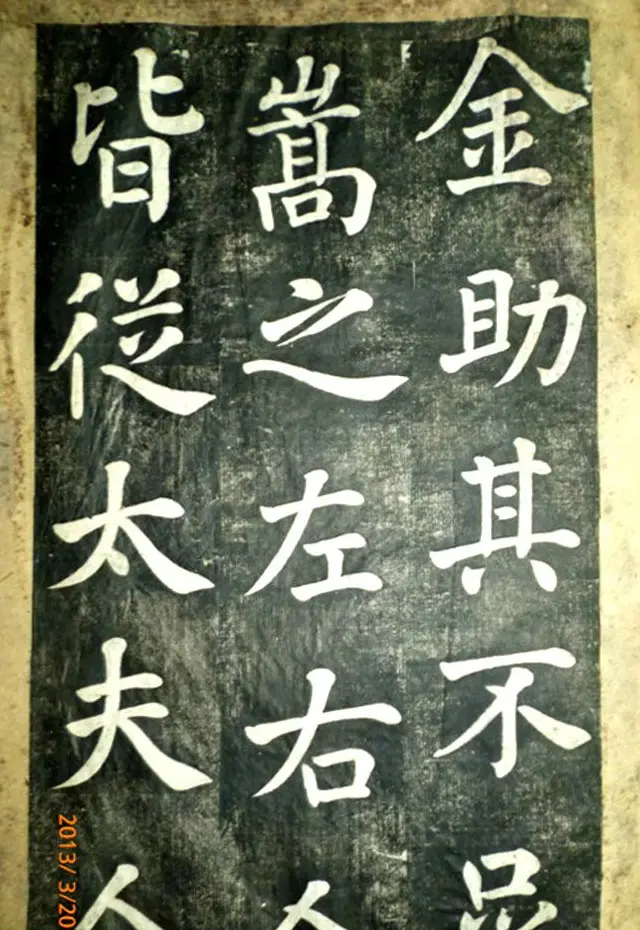 金助其不
嵩之左右人
皆從太夫人
2013/3/20